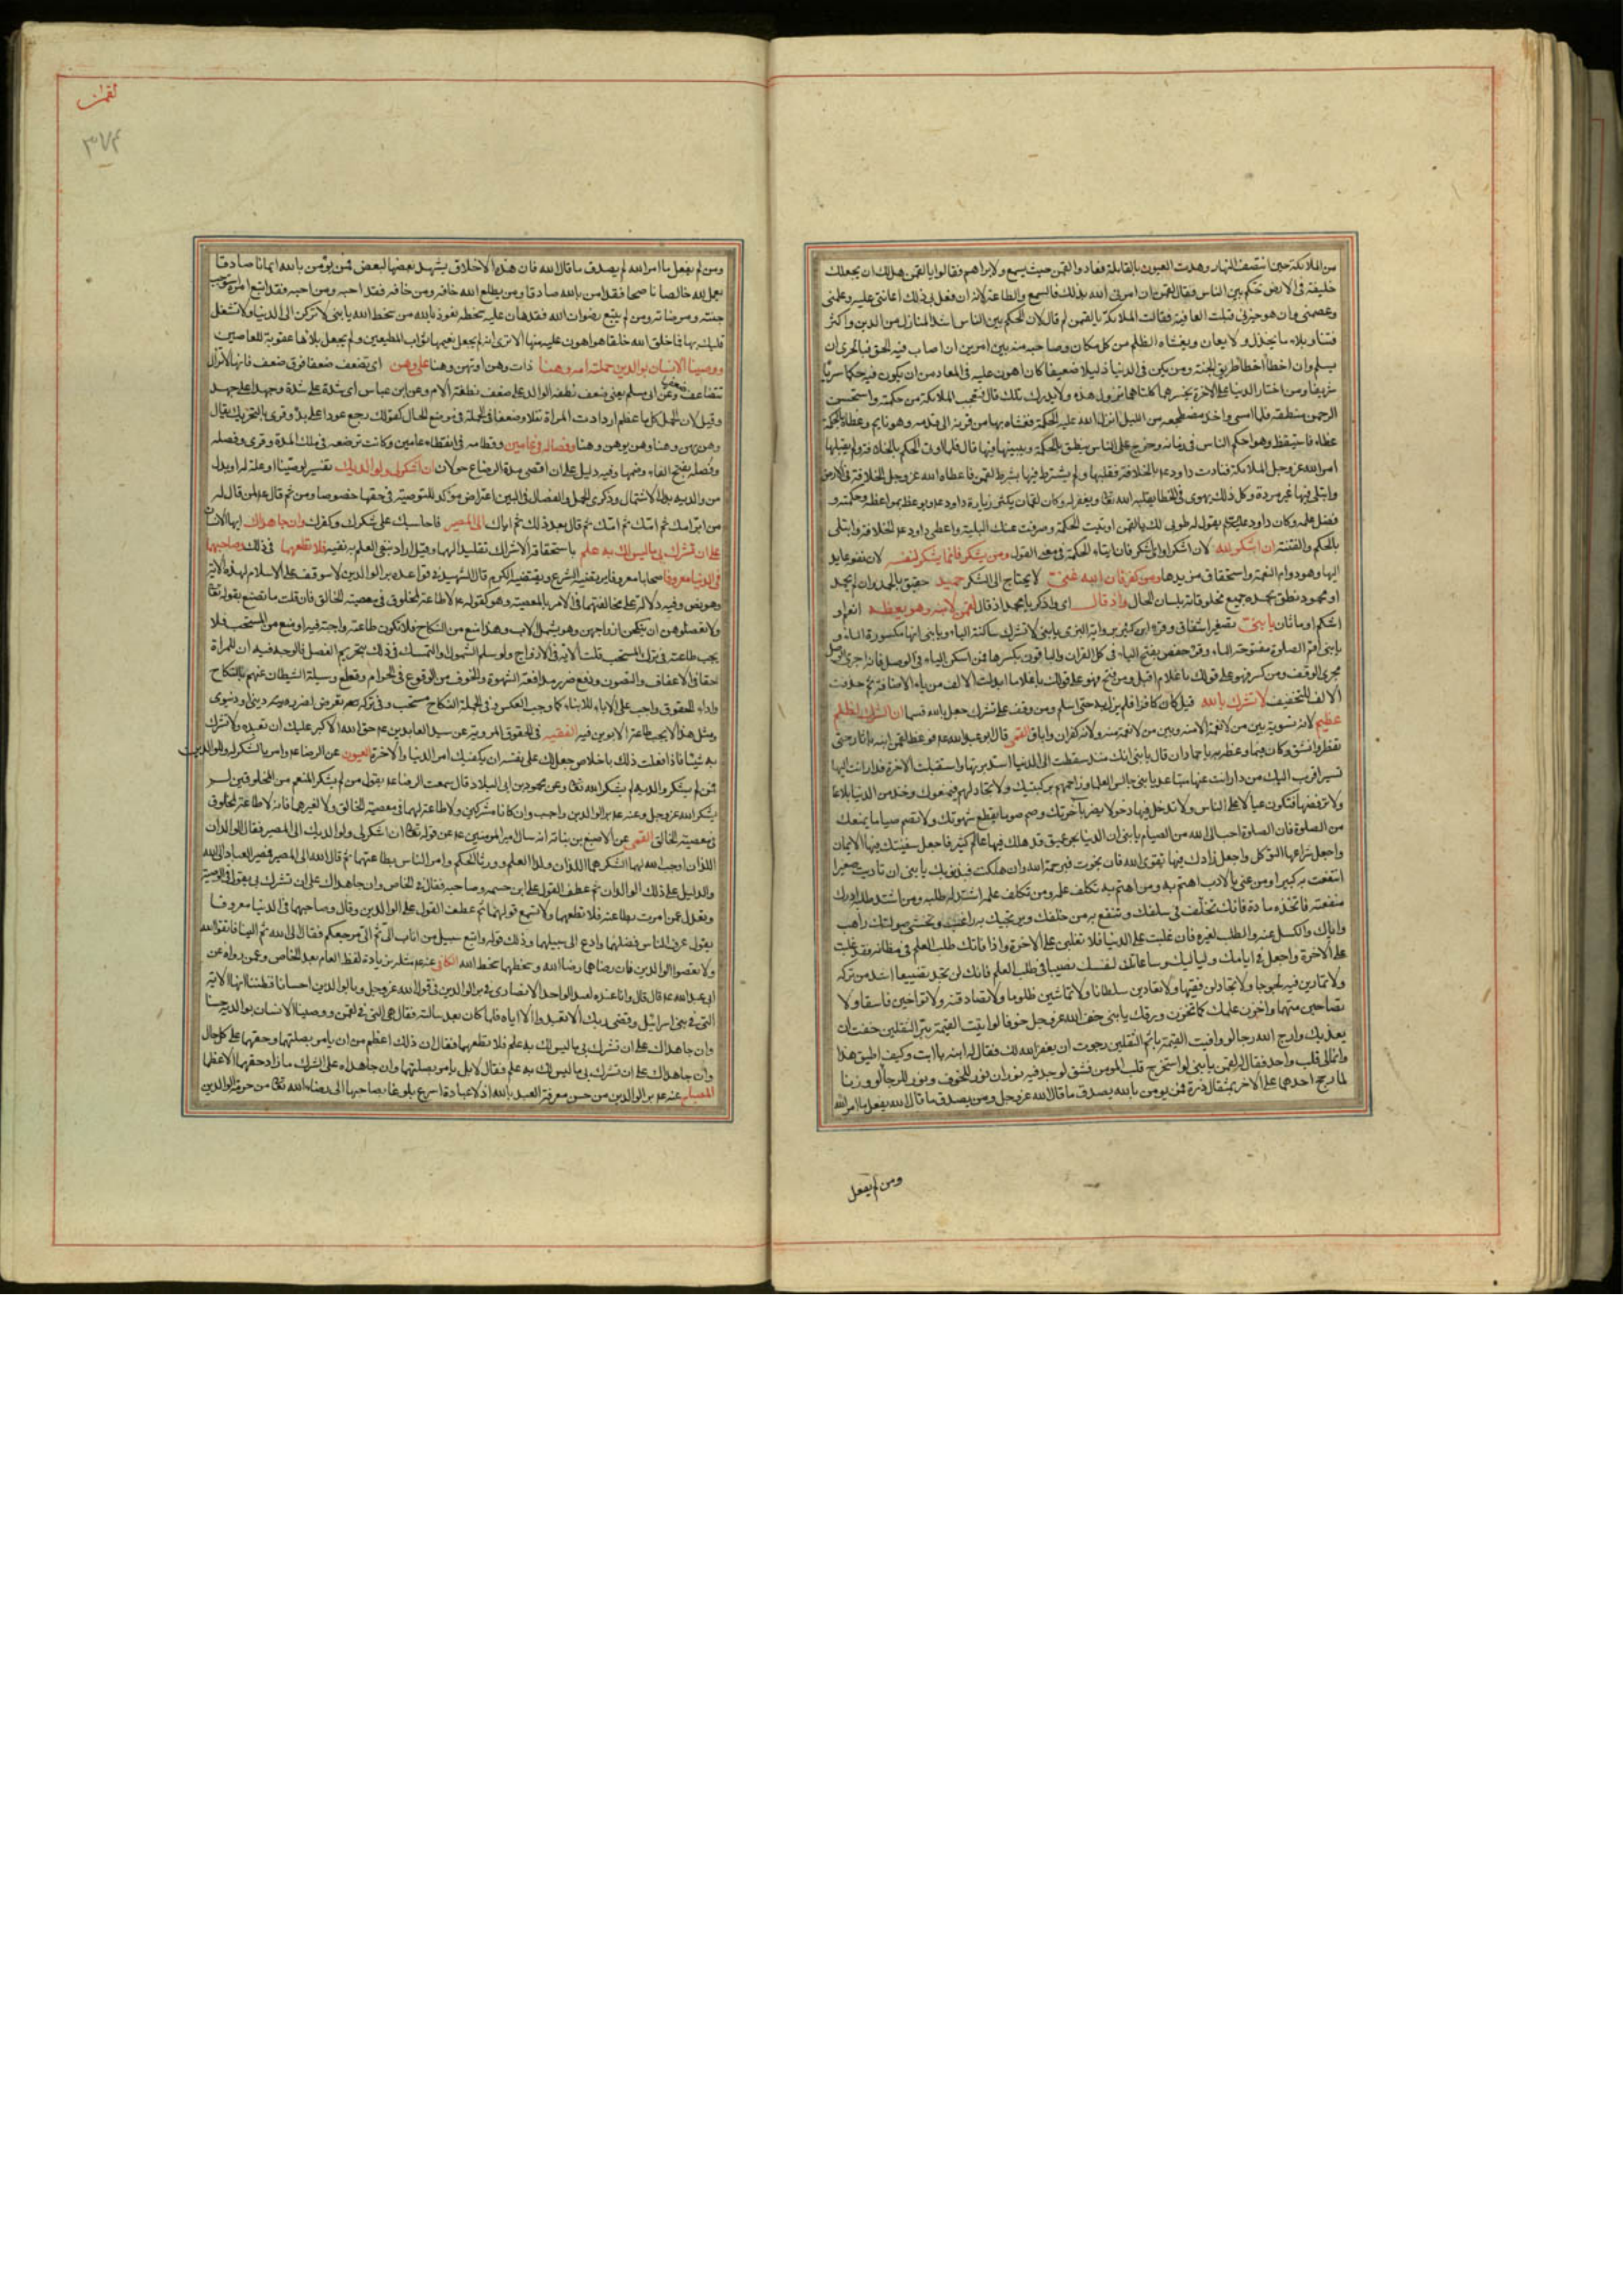 من الملائكة حين انتصف النهار وهدت العيون بالقايلة فنادوا لقمن حيث يسمع ولا يراهم فقالوا يا لقمن هل لك ان يجعلك
خليفة فى الارض تحكم بين الناس فقال لقمن ان امرنى الله بذلك فالسمع والطاعة لانه ان فعل بى ذلك اعاننى عليه وعلمنى
وعصمنى وان هو خيرنى قبلت العافية فقالت الملائكة يا لقمن لم قال لان الحكم بين الناس اشد المنازل من الدين واكثر
فتنا وبلاء ما يخذل ولا يعان ويغشاه الظلم من كل مكان وصاحبه منه بين امرين ان اصاب فيه الحق فبالحرى ان
يسلم وان اخطأ اخطأ طريق الجنة ومن يكن فى الدنيا ذليلا ضعيفا كان اهون عليه فى المعاد من ان يكون فيه حكما سريا
شريفا ومن اختار الدنيا على الاخرة يخسرهما كلتاهما تزول هذه ولا يدرك تلك قال فتعجب الملائكة من حكمته واستحسن
الرحمن منطقه فلما امسى واخذ مضجعه من الليل انزل الله عليه الحكمة فغشاه بها من قرنه الى قدمه وهو نايم وغطاه بالحكمة
غطاء فاستيقظ وهو احكم الناس فى زمانه وخرج على الناس ينطق بالحكمة ويبينها فيها قال فلما اوتى الحكم بالخلافة ولم يقبلها
امر الله عز وجل الملائكة فنادت داود عم بالخلافة فقبلها ولم يشترط فيها بشرط لقمن فاعطاه الله عز وجل الخلافة فى الارض
وابتلى فيها غير مرة وكل ذلك يهوى فى الخطا يقيله الله تعا ويغفر له وكان لقمان يكثر زيارة داود عم ويعظه بمواعظه وحكمته و
فضل علمه وكان داود عليه يقول له طوبى لك يا لقمن اوتيت الحكمة وصرفت عنك البلية واعطى داود عم الخلافة وابتلى
بالحكم والفتنة ان اشكر لله لان اشكر او اى اشكر فان ايتاء الحكمة فى معنى القول ومن يشكر فانما يشكر لنفسه لان نفعه عايد
اليها وهو دوام النعمة واستحقاق مزيدها ومن كفر فان الله غنى لا يحتاج الى الشكر حميد حقيق بالحمد وان لم يحمد
او محمود نطق بحمده جميع مخلوقاته بلسان الحال واذ قال اى واذكر يا محمد اذ قال لقمن لابنه وهو يعظه انعم او
اشكم او ماثان يا بنى تصغير اشفاق وقرا ابن كثير برواية البزى يا بنى لا تشرك ساكنة الياء ويا بنى انها مكسورة الياء و
يا بنى اقم الصلوة مفتوحة الياء وقرء حفص بفتح الياء فى كل القران والباقون بكسرها فمن اسكن الياء فى الوصل فانه اجرى الوصل
مجرى الوقف ومن كسر فهو على قولك يا غلام اقبل ومن فتح فهو على قولك يا غلاما ابدلت الالف من ياء الاضافة ثم حذفت
الالف للتخفيف لا تشرك بالله قيل كان كافرا فلم يزل به حتى اسلم ومن وقف على تشرك جعل بالله قسما ان الشرك لظلم
عظيم لانه تسوية بين من لا نعمة الا منه وبين من لا نعمة منه ولانه كفران واباق القمى قال ابو عبد الله عم فوعظ لقمن ابنه باثار حتى
تفطر وانشق وكان فيما وعظه به يا حماد ان قال يا بنى انك منذ سقطت الى الدنيا استدبرتها واستقبلت الاخرة فدار انت اليها
تسير اقرب اليك من دار انت عنها متباعد يا بنى جالس العلماء وزاحمهم بركبتيك ولا تجادلهم فيمنعوك وخذ من الدنيا بلاغا
ولا ترفضها فتكون عيالا على الناس ولا تدخل فيها دخولا يضر بآخرتك وصم صوما يقطع شهوتك ولا تصم صياما يمنعك
من الصلوة فان الصلوة احب الى الله من الصيام يا بنى ان الدنيا بحر عميق قد هلك فيها عالم كثير فاجعل سفينتك فيها الايمان
واجعل شراعها التوكل واجعل زادك فيها تقوى الله فان نجوت فبرحمة الله وان هلكت فبذنوبك يا بنى ان تادبت صغيرا
انتفعت به كبيرا ومن عنى بالادب اهتم به ومن اهتم به تكلف علمه ومن تكلف علمه اشتد له طلبه ومن اشتد طلبه ادرك
منفعته فاتخذه عادة فانك تخلف فى سلفك وتنفع به من خلفك ويرتجيك به راغب ويخشى صولتك راهب
واياك والكسل عنه والطلب لغيره فان غلبت على الدنيا فلا تغلبن على الاخرة واذا فاتك طلب العلم فى مظانه فقد غلبت
على الاخرة واجعل فى ايامك ولياليك وساعاتك لنفسك نصيبا فى طلب العلم فانك لن تجد تضييعا اشد من تركه
ولا تمارين فيه لجوجا ولا تجادلن فقيها ولا تعادين سلطانا ولا تماشين ظلوما ولا تصادقنه ولا تواخين فاسقا ولا
تصاحبن متهما واخزن علمك كما تخزن ورقك يا بنى خف الله عز وجل خوفا لو اتيت القيمة ببر الثقلين خفت ان
يعذبك وارج الله رجاء لو وافيت القيمة باثم الثقلين رجوت ان يغفر الله لك فقال له ابنه يا ابت وكيف اطيق هذا
وانما لى قلب واحد فقال له لقمن يا بنى لو استخرج قلب المومن فشق لوجد فيه نوران نور للخوف ونور للرجاء لو وزنا
لما رجح احدهما على الاخر بمثقال ذرة فمن يومن بالله يصدق ما قال الله عز وجل ومن يصدق ما قال الله يفعل ما امر الله
ومن لم يفعل
لقمن
٣٧۴
ومن لم يفعل ما امر الله لم يصدق ما قال الله فان هذه الاخلاق يشهد بعضها لبعض فمن يؤمن بالله ايمانا صادقا
يعمل لله خالصا ناصحا فقد امن بالله صادقا ومن يطع الله خافه ومن خافه فقد احبه ومن احبه فقد اتبع امره استوجب
جنته ومرضاته ومن لم يتبع رضوان الله فقد هان عليه سخطه نعوذ بالله من سخط الله يا بنى لا تركن الى الدنيا ولا تشغل
قلبك بها فما خلق الله خلقا هو اهون عليه منها الا ترى انه لم يجعل نعيمها ثواب المطيعين ولم يجعل بلاءها عقوبة للعاصين
ووصينا الانسان بوالديه حملته امه وهنا ذات وهن او تهن وهنا على وهن اى تضعف ضعفا فوق ضعف فانها لا تزال
تتضاعف ضعفها وعن ابى مسلم يعنى ضعف نطفة الوالد على ضعف نطفة الام وعن ابن عباس اى شدة على شدة وجهدا على جهد
وقيل لان الحمل كلما عظم ازدادت المراة ثقلا وضعفا فى الجملة فى موضع الحال كقولك رجع عودا على بدء وقرى بالتحريك يقال
وهن يهن وهنا ووهن يوهن وهنا وفصاله فى عامين وفطامه فى انقضاء عامين وكانت ترضعه فى تلك المدة وقرى وفصله
وفصله بفتح الفاء وضمها وفيه دليل على ان اقصى مدة الرضاع حولان ان اشكر لى ولوالديك تفسير لوصينا او علة له او بدل
من والديه بدل الاشتمال وذكرى الحمل والفصال فى البين اعتراض موكد للتوصية فى حقها خصوصا ومن ثم قال عم لمن قال له
من ابر امك ثم امك ثم امك ثم قال بعد ذلك ثم اباك الى المصير فاحاسبك على شكرك وكفرك وان جاهداك ايها الانسان
على ان تشرك بى ما ليس لك به علم باستحقاقه الاشراك تقليدا لهما وقيل اراد بنفى العلم به نفيه فلا تطعهما فى ذلك وصاحبهما
فى الدنيا معروفا صحابا معروفا يرتضيه الشرع ويقتضيه الكرم قال الشهيد فى قواعده بر الوالدين لا يتوقف على الاسلام لهذه الاية
وهو نص وفيه دلالة على مخالفتهما فى الامر بالمعصية وهو كقوله عم لا طاعة لمخلوق فى معصية الخالق فان قلت ما تصنع بقوله تعا
ولا تعضلوهن ان ينكحن ازواجهن وهو يشمل الاب وهذا منع من النكاح فلا تكون طاعته واجبة فيه او منع من المستحب فلا
يجب طاعته فى ترك المستحب قلت الاية فى الازواج ولو سلم الشمول والتمسك فى ذلك بتحريم العضل فالوجه فيه ان للمراة
حقا فى الاعفاف والتصون ودفع ضرر مدافعة الشهوة والخوف من الوقوع فى الحرام وقطع وسيلة الشيطان عنهم بالنكاح
واداء الحقوق واجب على الاباء للابناء كما وجب العكس وفى الجملة النكاح مستحب وفى تركه تعرض لضرر دينى او دنيوى
ومثل هذا لا يجب طاعة الابوين فيه الفقيه فى الحقوق المروية عن سيد العابدين عم حق الله الاكبر عليك ان تعبده ولا تشرك
به شيئا فاذا فعلت ذلك باخلاص جعل لك على نفسه ان يكفيك امر الدنيا والاخرة العيون عن الرضا عم وامر بالشكر له وللوالدين
فمن لم يشكر والديه لم يشكر الله تعا وعن محمود بن ابى البلاد قال سمعت الرضا عم يقول من لم يشكر المنعم من المخلوقين لم
يشكر الله عز وجل وعنه عم بر الوالدين واجب وان كانا مشركين ولا طاعة لهما فى معصية الخالق ولا لغيرهما فانه لا طاعة لمخلوق
فى معصية الخالق القمى عن الاصبغ بن نباتة انه سال امير المومنين عم عن قوله تعا ان اشكر لى ولوالديك الى المصير فقال الوالدان
اللذان اوجب الله لهما الشكر هما اللذان ولدا العلم وورثا الحكم وامر الناس بطاعتهما ثم قال الله الى المصير فمصير العباد الى الله
والدليل على ذلك الوالدان ثم عطف القول على ابن حنتمة وصاحبه فقال فى الخاص وان جاهداك على ان تشرك بى يقول فى الوصية
وتعدل عمن امرت بطاعته فلا تطعهما ولا تسمع قولهما ثم عطف القول على الوالدين وقال وصاحبهما فى الدنيا معروفا
يقول عرف الناس فضلهما وادع الى سبيلهما وذلك قوله واتبع سبيل من اناب الى ثم الى مرجعكم فقال الى الله ثم الينا فاتقوا الله
ولا تعصوا الوالدين فان رضاهما رضا الله وسخطهما سخط الله الكافى عنه عم مثله بزيادة لفظ العام بعد الخاص وعمن رواه عن
ابى عبد الله عم قال قال وانا عنده لعبد الواحد الانصارى فى بر الوالدين فى قول الله عز وجل وبالوالدين احسانا فظننا انها الاية
التى فى بنى اسرائيل وقضى ربك الا تعبدوا الا اياه فلما كان بعد سالته فقال هى التى فى لقمن ووصينا الانسان بوالديه حسنا
وان جاهداك على ان تشرك بى ما ليس لك به علم فلا تطعهما فقال ان ذلك اعظم من ان يامر بصلتهما وحقهما على كل حال
وان جاهداك على ان تشرك بى ما ليس لك به علم فقال لا بل يامر بصلتهما وان جاهداه على الشرك ما زاد حقهما الا عظما
المصباح عنه عم بر الوالدين من حسن معرفة العبد بالله اذ لا عبادة اسرع بلوغا بصاحبها الى رضاء الله تعا من حرمة الوالدين